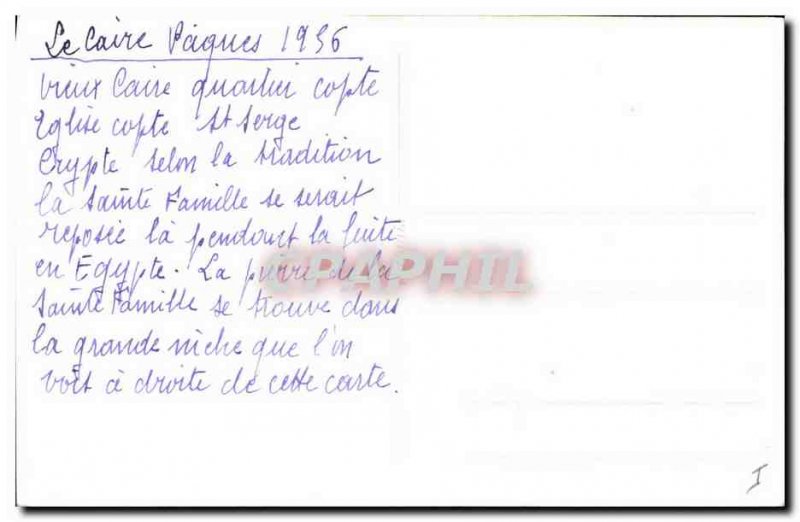 Le Caire Pâques 1956
Vieux Caire quartier copte
Eglise copte St Serge
Crypte selon la tradition
la Sainte Famille se serait
reposée là pendant la fuite
en Egypte. La pierre de la
Sainte Famille se trouve dans
la grande niche que l'on
voit à droite de cette carte.
CPAPHIL
I